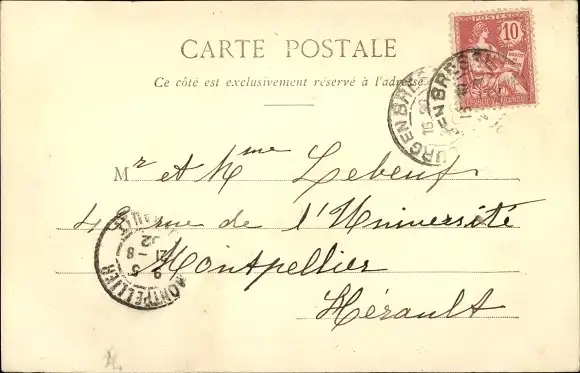 CARTE POSTALE
Ce côté est exclusivement réservé à l'adresse
POSTES
10
BOURG EN BRESSE
Mr et Mme Lebeuf
4 rue de l'Université
Montpellier
Hérault
MONTPELLIER
HERAULT